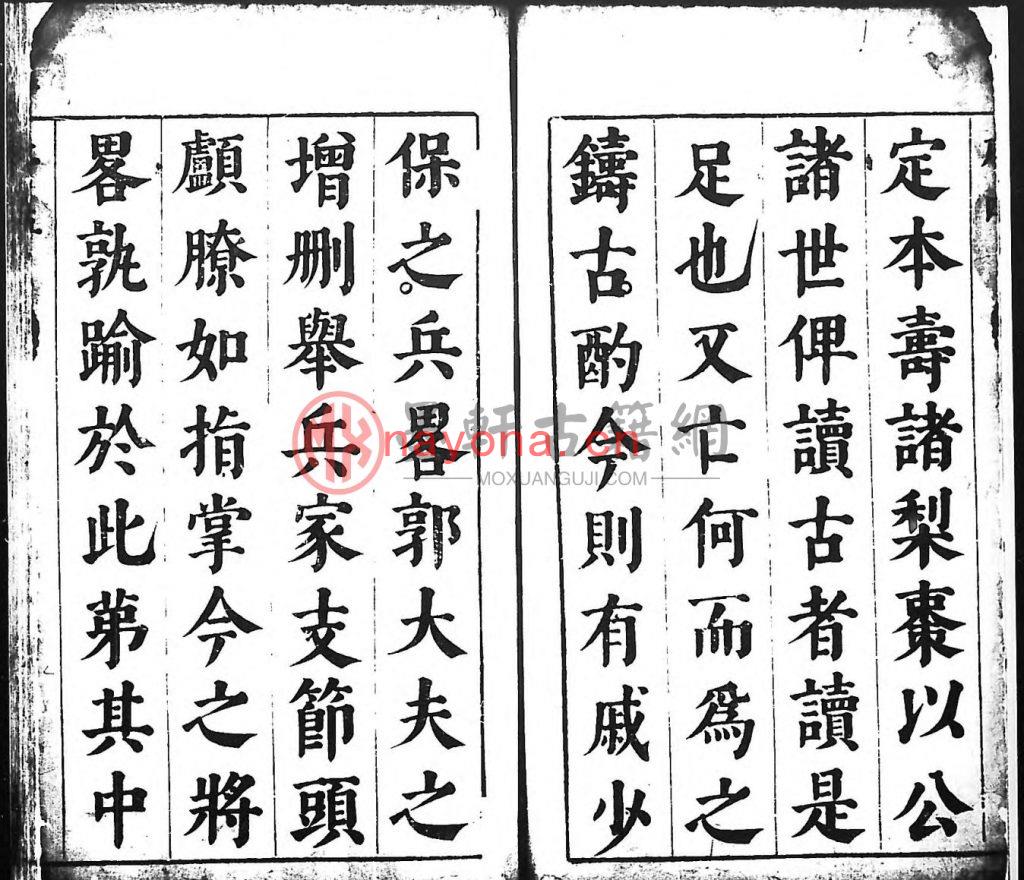 定本壽諸梨棗以公
諸世俾讀古者讀是
足也又亡何而爲之
鑄古酌今則有戚少
保之兵畧郭大夫之
增刪舉兵家支節頭
顱膫如指掌今之將
畧孰踰於此苐其中
nayona.cn
墨軒古籍網
MOXUANGUJI.COM